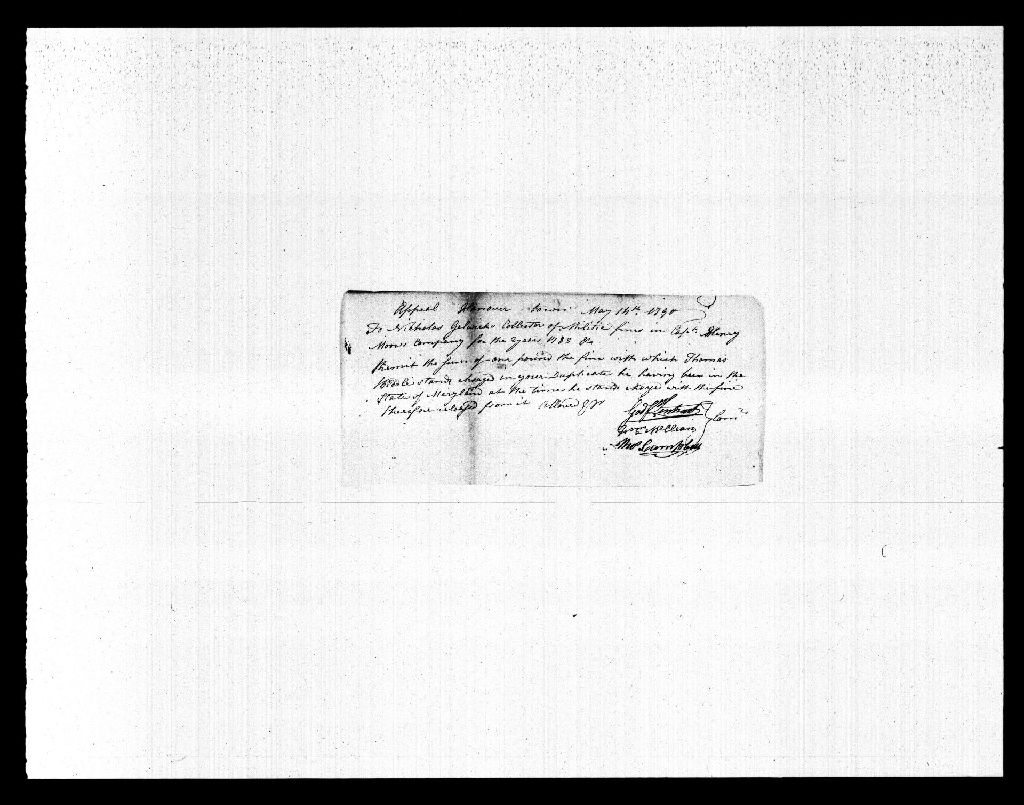 Appeal Hanover town May 14th 1790
To Nicholas Gelwicks Collector of Militia fines in Capt. Henry
Moor's Company for the years 1783 84
Remit the sum of one pound the fine with which Thomas
stands charged in your Duplicate he having been in the
State of Maryland at the times he stands charge with the fine
therefore released from it
Com.rs